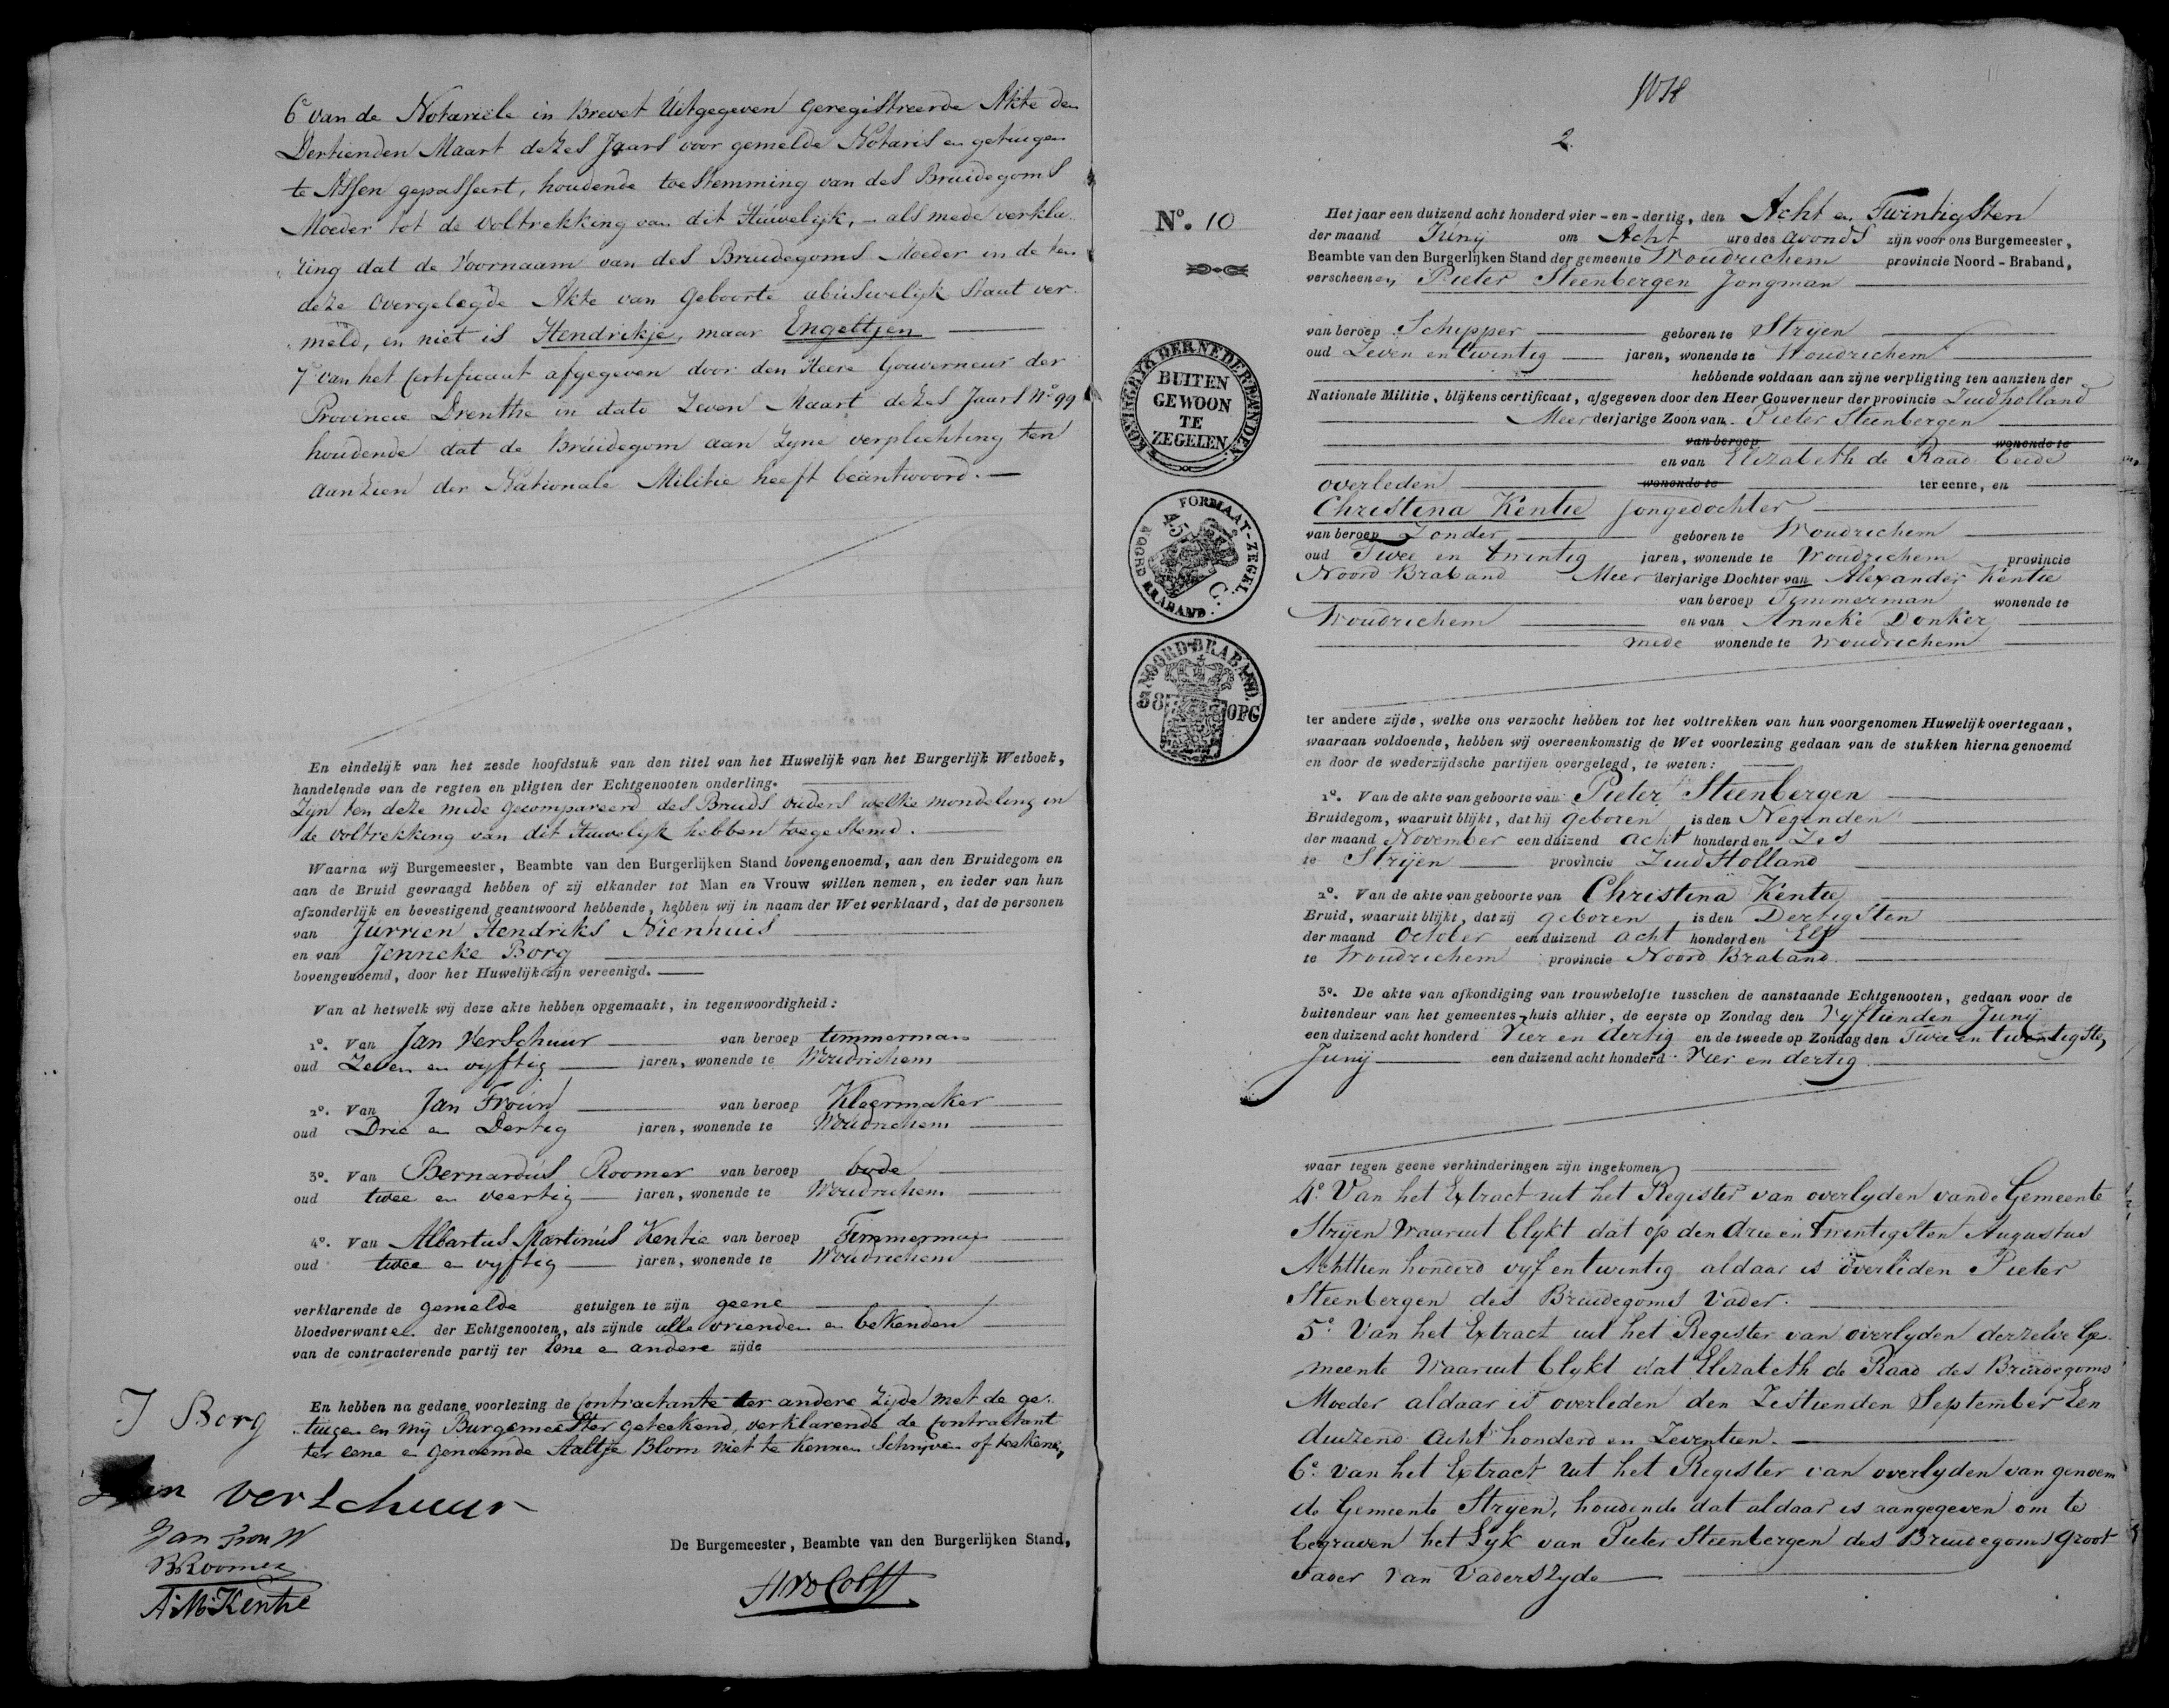 6e van de Notariële in Brevet Uitgegeven geregistreerde Akte den
Dertienden Maart dezes Jaars voor gemelde Notaris en getuigen
te Assen gepasseert, houdende toestemming van des Bruidegoms
Moeder tot de voltrekking van dit Huwelijk, - als mede verkla-
ring dat de Voornaam van des Bruidegoms Moeder in de ten
deze overgelegde Akte van Geboorte abusivelijk staat ver-
meld, en niet is Hendrikje, maar Engeltjen
7e van het Certificaat afgegeven door den Heere Gouverneur der
Provincie Drenthe in dato Zeven Maart dezes Jaars No 99
houdende dat de Bruidegom aan Zyne verplichting ten
aanzien der Nationale Militie heeft beäntwoord. -
En eindelijk van het zesde hoofdstuk van den titel van het Huwelijk van het Burgerlijk Wetboek,
handelende van de regten en pligten der Echtgenooten onderling.
Zijn ten deze mede gecompareerd des Bruids ouders welke mondeling in
de voltrekking van dit Huwelyk hebben toegestemd.
Waarna wij Burgemeester, Beambte van den Burgerlijken Stand bovengenoemd, aan den Bruidegom en
aan de Bruid gevraagd hebben of zij elkander tot Man en Vrouw willen nemen, en ieder van hun
afzonderlijk en bevestigend geantwoord hebbende, hebben wij in naam der Wet verklaard, dat de personen
van Jurrien Hendriks Nienhuis
en van Jenneke Borg
bovengenoemd, door het Huwelijk zijn vereenigd.
Van al hetwelk wij deze akte hebben opgemaakt, in tegenwoordigheid:
1o. Van Jan Verschuur van beroep timmerman
oud Zeven en vyftig jaren, wonende te Woudrichem
2o. Van Jan Froun van beroep Kleermaker
oud Drie en Dertig jaren, wonende te Woudrichem
3o. Van Bernardus Roomer van beroep bode
oud twee en veertig jaren, wonende te Woudrichem
4o. Van Albartus Martinus Kentie van beroep Timmerman
oud twee en vyftig jaren, wonende te Woudrichem
verklarende de gemelde getuigen te zijn geene
bloedverwanten der Echtgenooten, als zijnde alle vrienden en bekenden
van de contracterende partij ter eene en andere zijde
En hebben na gedane voorlezing de Contractante ter andere Zijde met de ge-
tuigen en mij Burgemeester geteekend, verklarende de Contractant
ter eene en genoemde Aaltje Blom niet te kennen Schrijven of teekenen,
J Borg
verschuur
Jan
B Roomer
A: M: Kentie
De Burgemeester, Beambte van den Burgerlijken Stand,
2
No. 10
KONINGRYK DER NEDERLANDEN
BUITEN
GEWOON
TE
ZEGELEN
FORMAAT-ZEGEL.
45
C.
NOORD BRABAND
NOORD-BRABAND
38
OPC
Het jaar een duizend acht honderd vier-en-dertig, den Acht en Twintigsten
der maand Junij om Acht ure des avonds zijn voor ons Burgemeester,
Beambte van den Burgerlijken Stand der gemeente Woudrichem provincie Noord-Braband,
verscheenen Pieter Steenbergen Jongman
van beroep Schipper geboren te Stryen
oud Zeven en twintig jaren, wonende te Woudrichem
hebbende voldaan aan zijne verpligting ten aanzien der
Nationale Militie, blijkens certificaat, afgegeven door den Heer Gouverneur der provincie Zuidholland
Meerderjarige Zoon van Pieter Steenbergen
van beroep wonende te
en van Elizabeth de Raad beide
overleden wonende te ter eenre, en
Christina Kentie jongedochter
van beroep Zonder geboren te Woudrichem
oud Twee en twintig jaren, wonende te Woudrichem provincie
Noord Braband Meerderjarige Dochter van Alexander Kentie
van beroep Timmerman wonende te
Woudrichem en van Anneke Donker
mede wonende te Woudrichem
ter andere zijde, welke ons verzocht hebben tot het voltrekken van hun voorgenomen Huwelijk overtegaan,
waaraan voldoende, hebben wij overeenkomstig de Wet voorlezing gedaan van de stukken hierna genoemd
en door de wederzijdsche partijen overgelegd, te weten:
1o. Van de akte van geboorte van Pieter Steenbergen
Bruidegom, waaruit blijkt, dat hij geboren is den Negenden
der maand November een duizend acht honderd en Zes
te Strijen provincie Zuid Holland
2o. Van de akte van geboorte van Christina Kentie
Bruid, waaruit blijkt, dat zij geboren is den Dertigsten
der maand October een duizend acht honderd en Elf
te Woudrichem provincie Noord Braband.
3o. De akte van afkondiging van trouwbelofte tusschen de aanstaande Echtgenooten, gedaan voor de
buitendeur van het gemeentes-huis alhier, de eerste op Zondag den Vyftienden Junij
een duizend acht honderd Vier en dertig en de tweede op Zondag den Twee en twentigste,
Junij een duizend acht honderd Vier en dertig.
waar tegen geene verhinderingen zijn ingekomen
4e. Van het Extract uit het Register van overlyden van de Gemeente
Strijen Waaruit blykt dat op den drie en Twintigsten Augustus
Achttien honderd vyf en twintig aldaar is overleden Pieter
Steenbergen des Bruidegoms Vader.
5e. Van het Extract uit het Register van overlyden derzelve Ge-
meente Waaruit blykt dat Elizabeth de Raad des Bruidegoms
Moeder aldaar is overleden den Zestienden September Een
duizend Acht honderd en Zeventien.
6e. Van het Extract uit het Register van overlyden van genoem
de Gemeente Stryen, houdende dat aldaar is aangegeven om te
begraven het Lyk van Pieter Steenbergen des Bruidegoms Groot
vader van Vaders Zyde